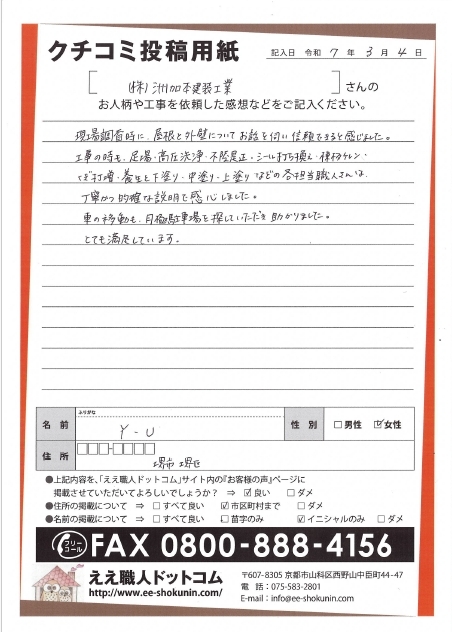 クチコミ投稿用紙
記入日 令和 7 年 3 月 4 日
(株)洲加本建装工業 さんの
お人柄や工事を依頼した感想などをご記入ください。
現場調査時に、屋根と外壁についてお話を伺い信頼できると感じました。
工事の時も、足場・高圧洗浄・不陸足正・シール打ち換え・棟板ケレン・
くぎ打増・養生と下塗り・中塗り・上塗りなどの各担当職人さんは、
丁寧かつ的確な説明で感心しました。
車の移動も、月極駐車場を探していただき助かりました。
とても満足しています。
ふりがな
名前 Y-U 性別 □男性 ☑女性
住所 堺市 堺区
●上記内容を、「ええ職人ドットコム」サイト内の『お客様の声』ページに
掲載させていただいてよろしいでしょうか? ⇒ ☑良い □ダメ
●住所の掲載について ⇒ □すべて良い ☑市区町村まで □ダメ
●名前の掲載について ⇒ □すべて良い □苗字のみ ☑イニシャルのみ □ダメ
フリーコール FAX 0800-888-4156
ええ職人ドットコム
http://www.ee-shokunin.com/
〒607-8305 京都市山科区西野山中臣町44-47
電話:075-583-2801
E-mail:info@ee-shokunin.com